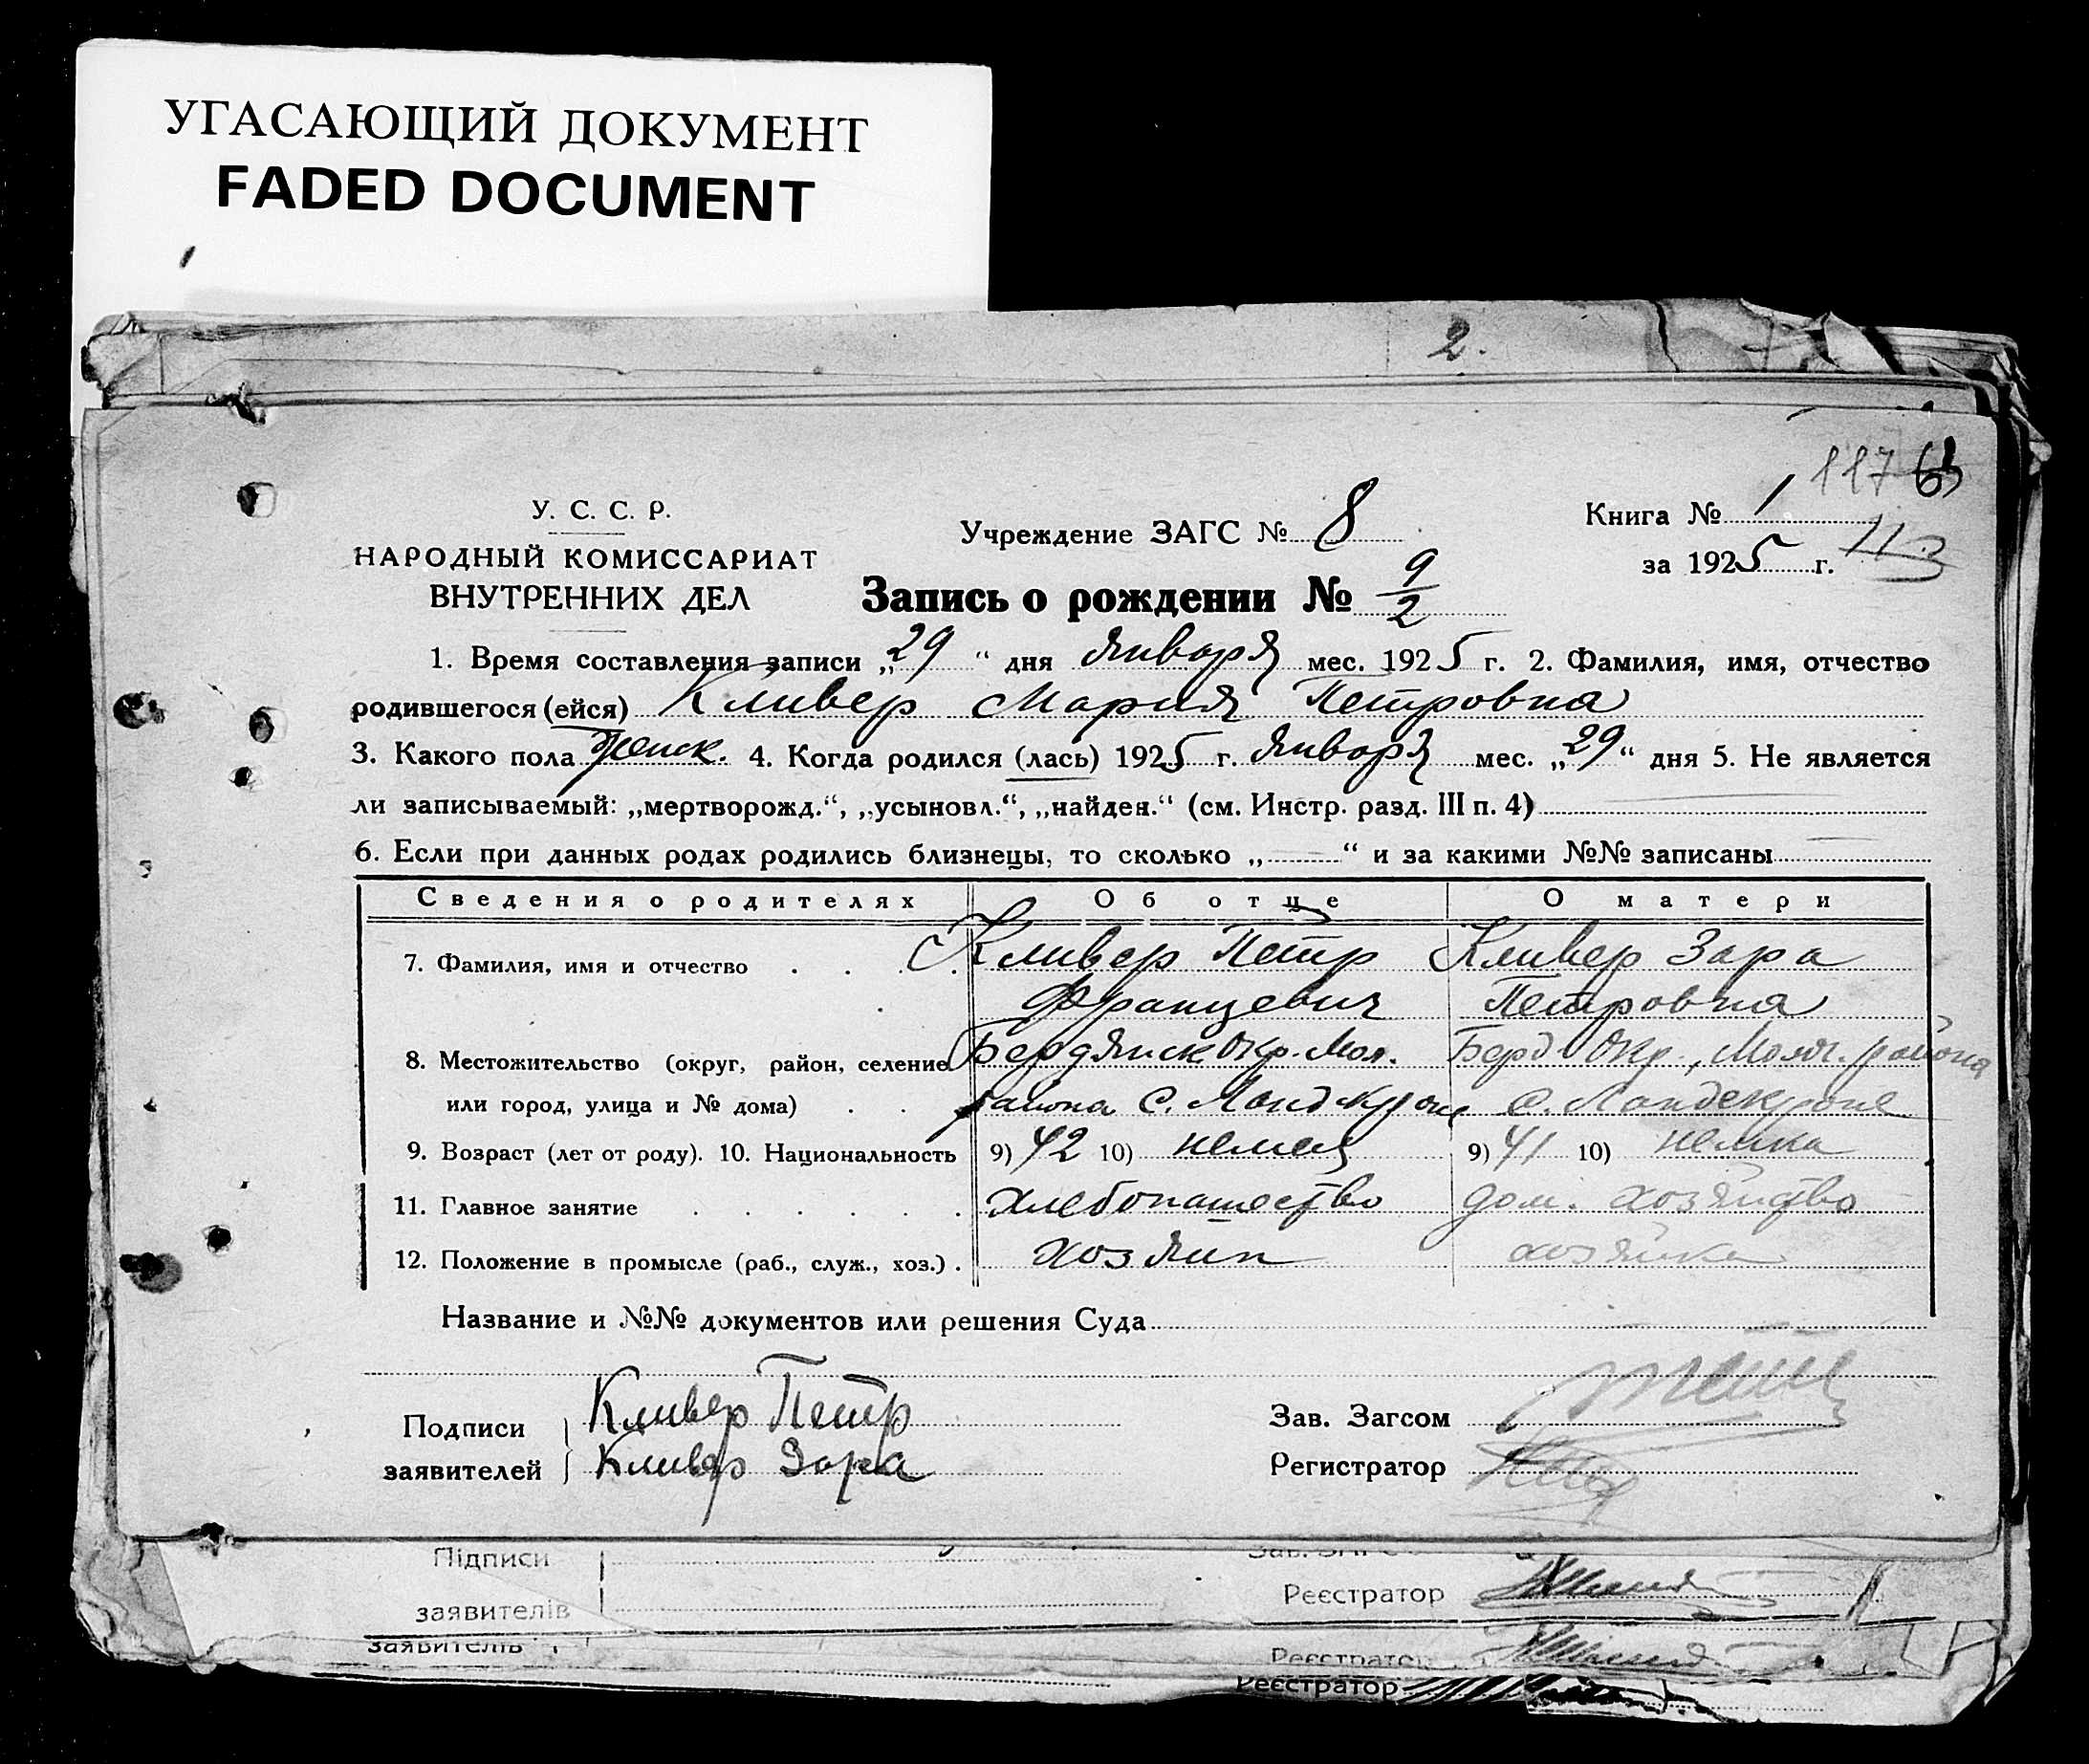 УГАСАЮЩИЙ ДОКУМЕНТ
FADED DOCUMENT
2.
117
У. С. С. Р.
НАРОДНЫЙ КОМИССАРИАТ
ВНУТРЕННИХ ДЕЛ
Учреждение ЗАГС № 8
Книга № 1
за 1925 г.
Запись о рождении № 9/2
1. Время составления записи „29“ дня января мес. 1925 г. 2. Фамилия, имя, отчество
родившегося (ейся) Кливер Мария Петровна
3. Какого пола женск. 4. Когда родился (лась) 1925 г. января мес. „29“ дня 5. Не является
ли записываемый: „мертворожд.“, „усыновл.“, „найден.“ (см. Инстр. разд. III п. 4)
6. Если при данных родах родились близнецы, то сколько „—“ и за какими №№ записаны
Сведения о родителях Об отце О матери
7. Фамилия, имя и отчество Кливер Петр Кливер Зара
Францевич Петровна
8. Местожительство (округ, район, селение Бердянск Окр. Мол. Берд Окр., Молоч. района
или город, улица и № дома) района с. Ландскроне с. Ландскроне
9. Возраст (лет от роду). 10. Национальность 9) 42 10) немец 9) 41 10) немка
11. Главное занятие хлебопашество дом. хозяйство
12. Положение в промысле (раб., служ., хоз.) хозяин хозяйка
Название и №№ документов или решения Суда
Подписи Кливер Петр Зав. Загсом
заявителей Кливер Зара Регистратор
Підписи
заявителів Реєстратор
заявителів Реєстратор
Реєстратор